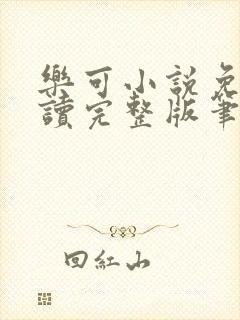 樂可小說免
讀完整版筆
回紅山